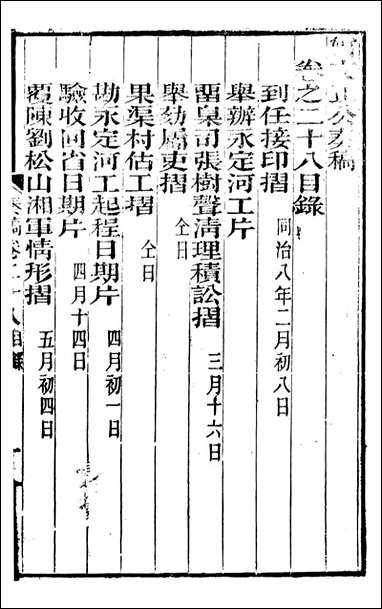 奏稿
卷之二十八目錄
到任接印摺 同治八年二月初八日
舉辦永定河工片
畱臬司張樹聲清理積訟摺 三月十六日
舉劾屬吏摺 仝日
果渠村估工摺 仝日
勘永定河工起程日期片 四月初一日
驗收回省日期片 四月十四日
覆陳劉松山湘軍情形摺 五月初四日
奏稿卷二十八目錄